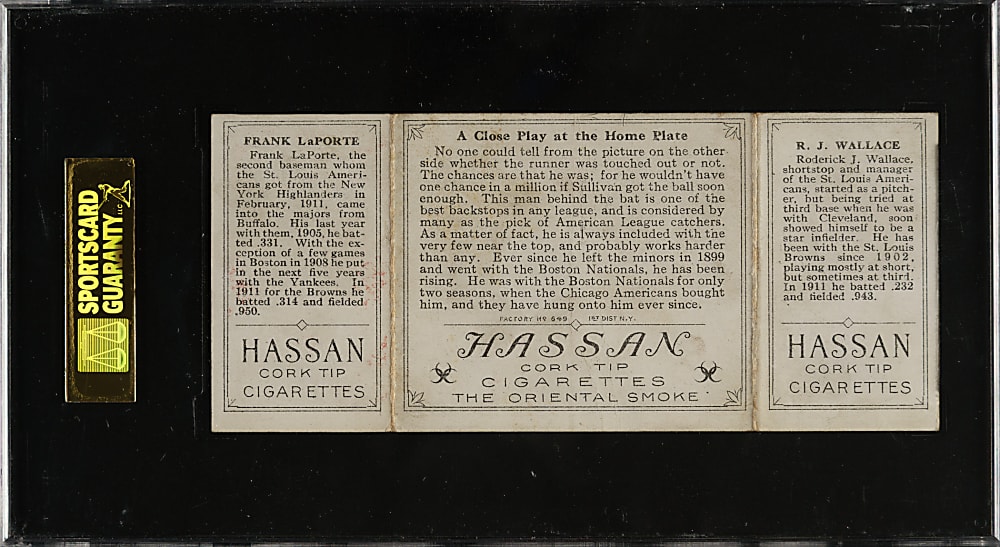 SPORTSCARD
GUARANTY LLC
FRANK LaPORTE
Frank LaPorte, the
second baseman whom
the St. Louis Ameri-
cans got from the New
York Highlanders in
February, 1911, came
into the majors from
Buffalo. His last year
with them, 1905, he bat-
ted .331. With the ex-
ception of a few games
in Boston in 1908 he put
in the next five years
with the Yankees. In
1911 for the Browns he
batted .314 and fielded
.950.
HASSAN
CORK TIP
CIGARETTES
A Close Play at the Home Plate
No one could tell from the picture on the other
side whether the runner was touched out or not.
The chances are that he was; for he wouldn't have
one chance in a million if Sullivan got the ball soon
enough. This man behind the bat is one of the
best backstops in any league, and is considered by
many as the pick of American League catchers.
As a matter of fact, he is always included with the
very few near the top, and probably works harder
than any. Ever since he left the minors in 1899
and went with the Boston Nationals, he has been
rising. He was with the Boston Nationals for only
two seasons, when the Chicago Americans bought
him, and they have hung onto him ever since.
FACTORY No 649 1st DIST N.Y.
HASSAN
CORK TIP
CIGARETTES
THE ORIENTAL SMOKE
R. J. WALLACE
Roderick J. Wallace,
shortstop and manager
of the St. Louis Ameri-
cans, started as a pitch-
er, but being tried at
third base when he was
with Cleveland, soon
showed himself to be a
star infielder. He has
been with the St. Louis
Browns since 1902,
playing mostly at short,
but sometimes at third.
In 1911 he batted .232
and fielded .943.
HASSAN
CORK TIP
CIGARETTES